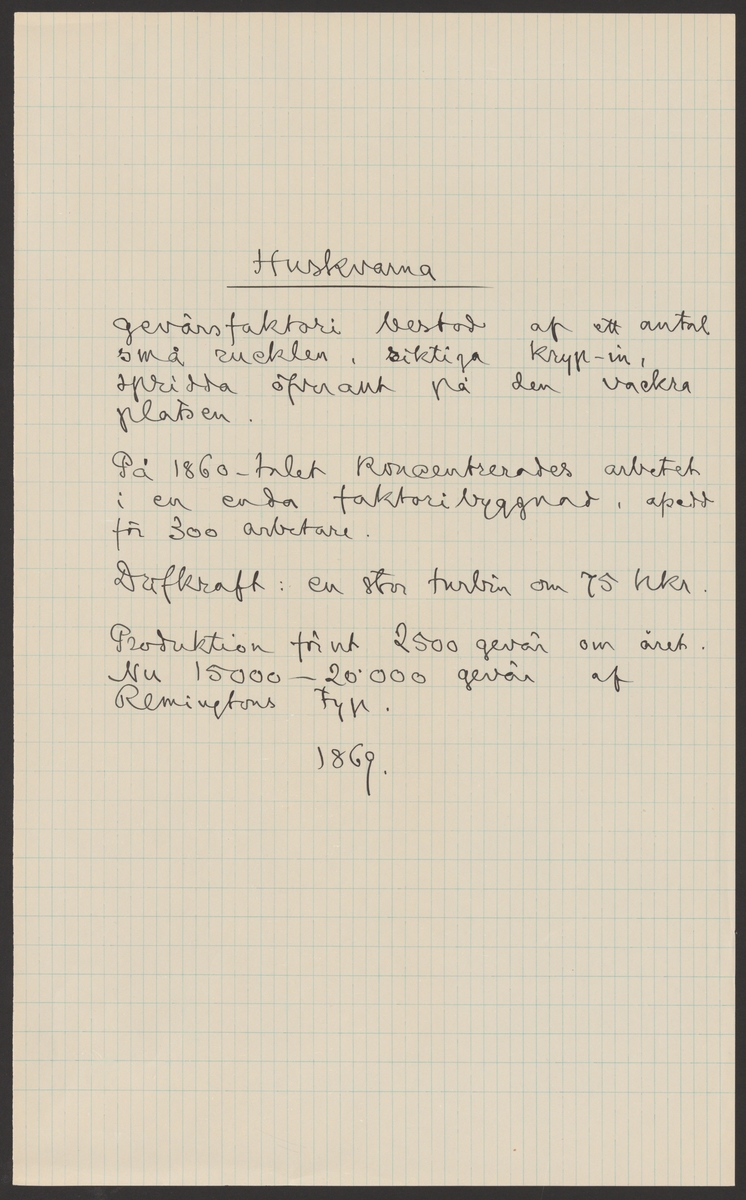 Huskvarna
gevärsfaktori bestod af ett antal
små rucklen, riktiga kryp-in,
spridda öfverallt på den vackra
platsen.
På 1860-talet koncentrerades arbetet
i en enda faktoribyggnad,
för 300 arbetare.
Drifkraft: en stor turbin om 75 hkr.
Produktion förut 2500 gevär om året.
Nu 15000-20.000 gevär af
Remingtons typ.
1869.